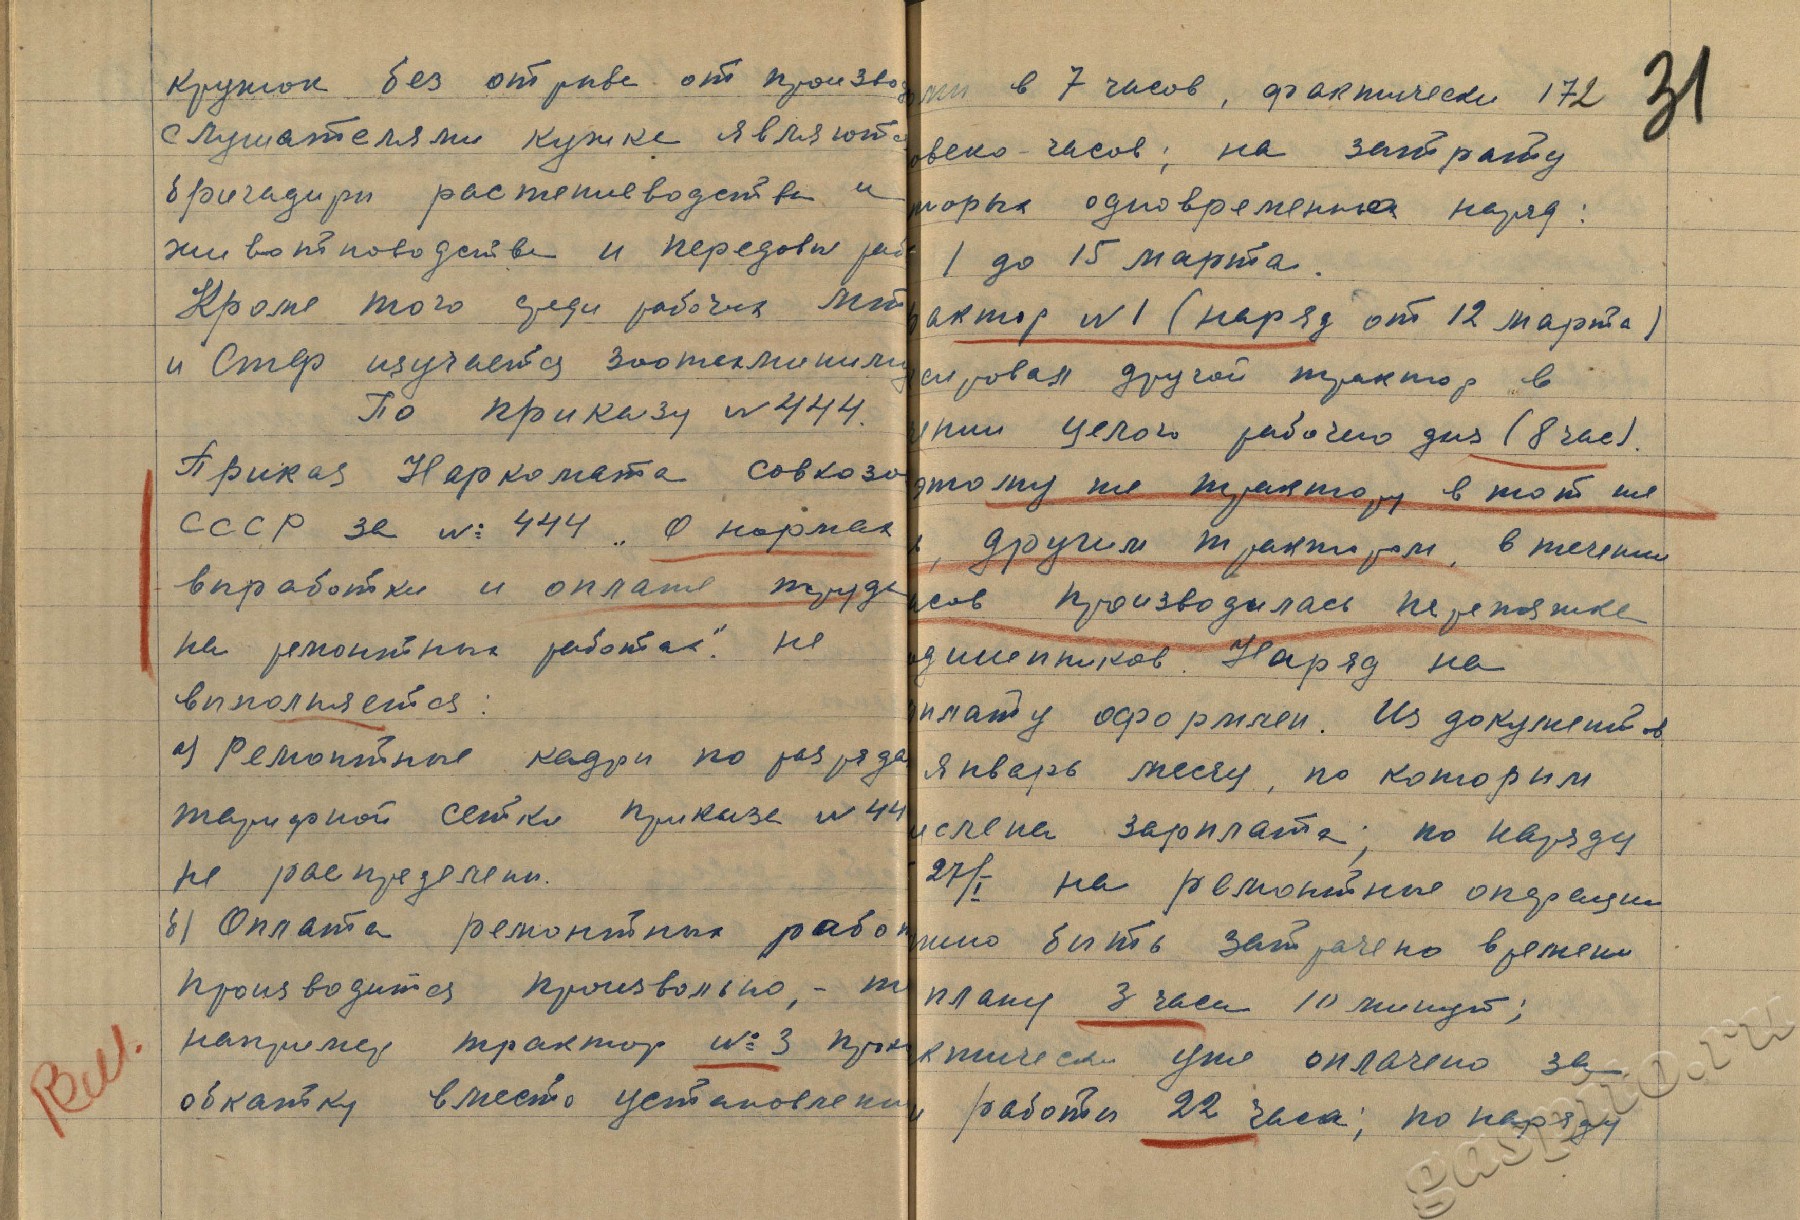 кружок без отрыва от производ
слушателями кужка являются
бригадиры растениеводства и
животноводства и передовы раб
Кроме того среди рабочих МТ
и СТФ изучается зоотехминиму
По приказу №444.
Приказ Наркомата совхозо
СССР за №: 444 „О нормах
выработки и оплате труда
на ремонтных работах". не
выполняется:
а) Ремонтные кадры по разряда
тарифной сетки приказа №44
не распределены.
б) Оплата ремонтных работ
производится произвольно, - т
например трактор №: 3 прои
обкатку вместо установленн
Вш.
31
ями в 7 часов, фактически 172
овеко-часов; на затрату
торых одновременных наряд:
1 до 15 марта.
рактор №1 (наряд от 12 марта)
сировал другой трактор в
ении целого рабочего дня (8 час).
этому же трактору в тот же
, другим трактором, в течении
асов производилась перетяжка
одшепников. Наряд на
плату оформлен. Из документов
январь месяц, по которым
ислена зарплата; по наряду
27/I на ремонтные операции
жно быть затрачено времени
плану 3 часа 10 минут;
ктически уже оплачено за
и работы 22 часа; по наряду
gaspito.ru